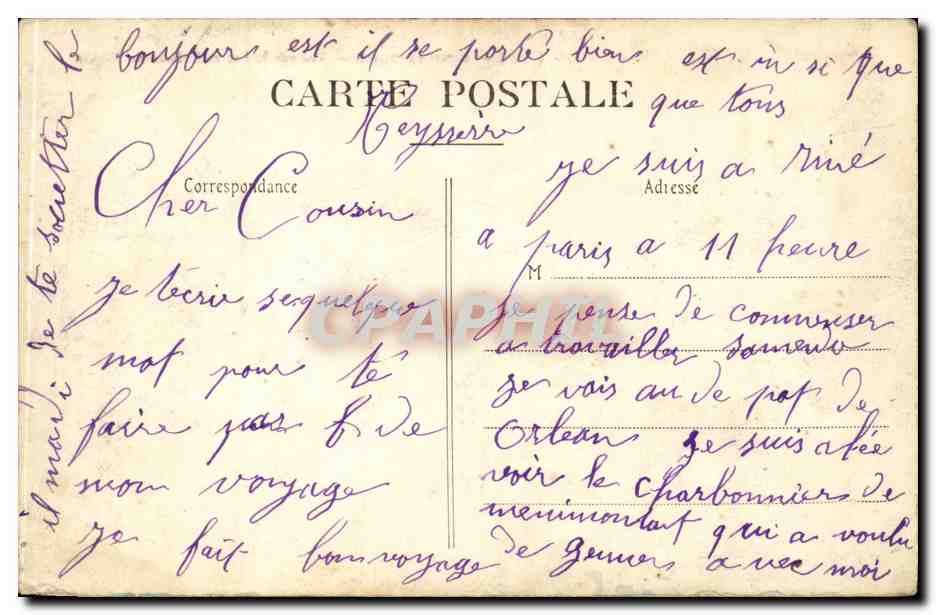 bonjour est il se porte bien est in si que
que tous
CARTE POSTALE
Meysserre
Correspondance
Cher Cousin
je técrie sequelque
mot pour té
faire pas f de
mon voyage
je fait bonvoyage
Adresse
je suis a rivé
a paris a 11 heure
M
je pense de commenser
a travailler samedi
je vais au de pot de
Orlean je suis alée
voir le charbonnier de
menimontant qui a voulu
de geuner avec moi
il mardi de te souetter le
CPAPHIL